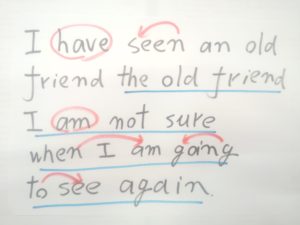 I have seen an old
friend the old friend
I am not sure
when I am going
to see again.